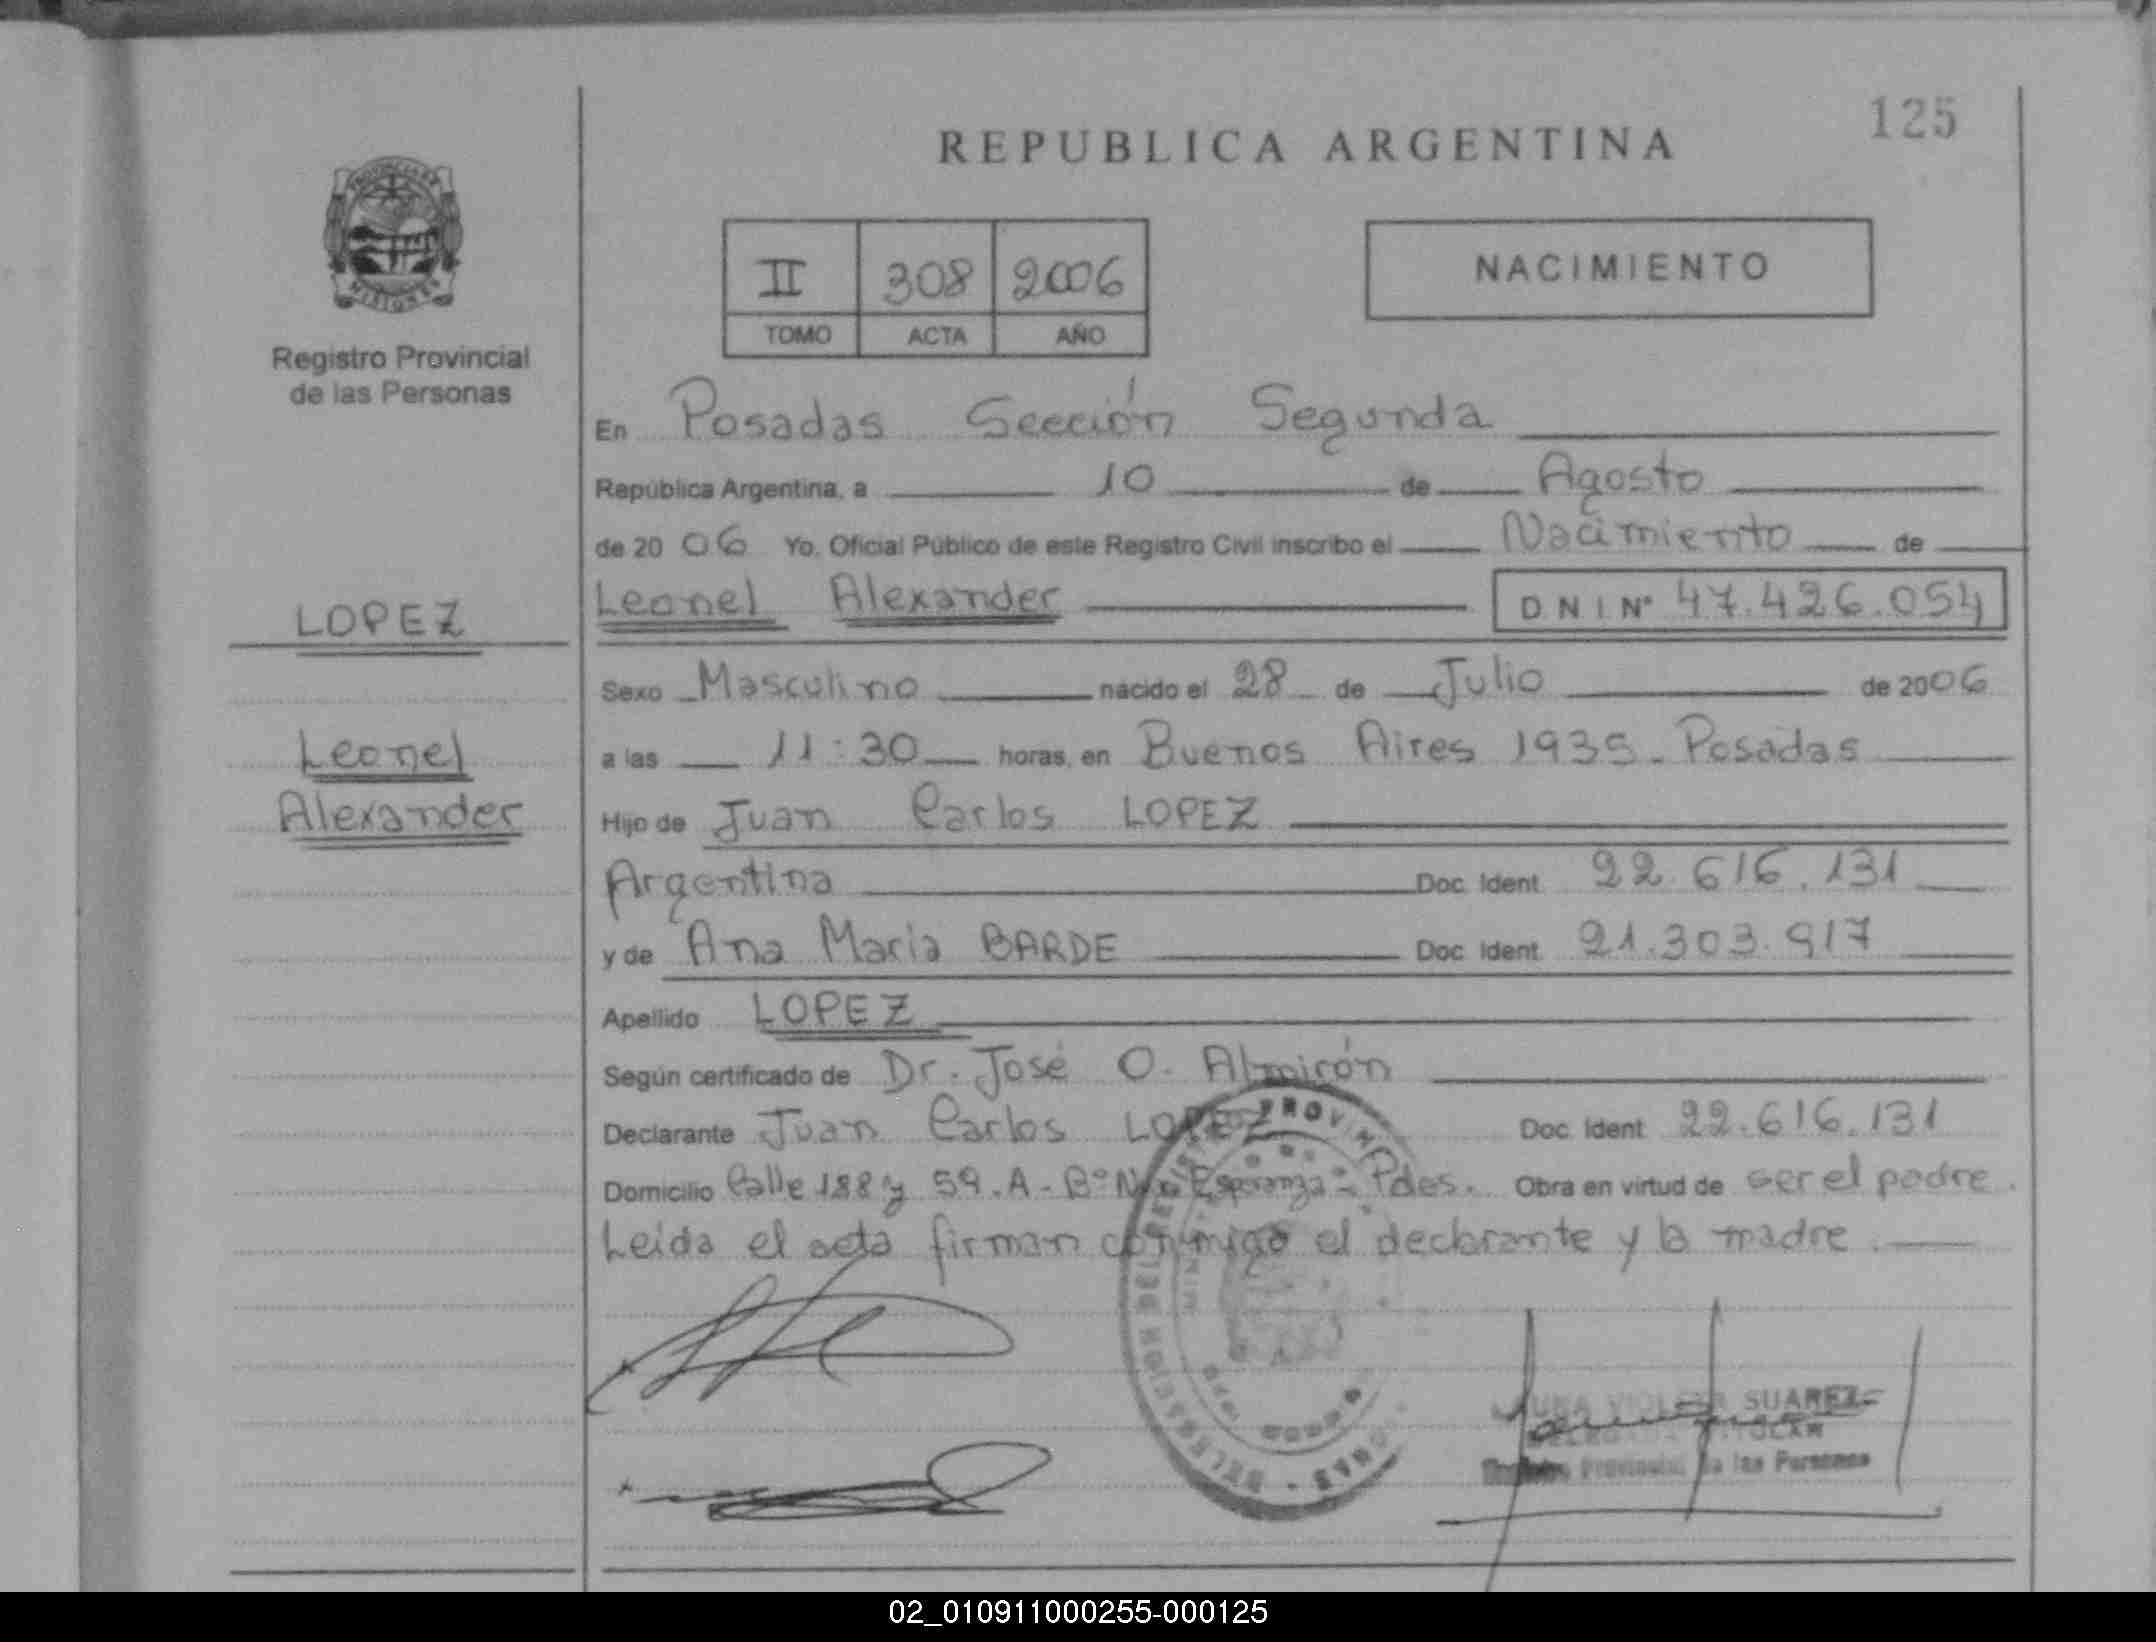 125
REPUBLICA ARGENTINA
MISIONES
Registro Provincial
de las Personas
II 308 2006
TOMO ACTA AÑO
NACIMIENTO
En Posadas Sección Segunda
República Argentina, a 10 de Agosto
de 2006 Yo. Oficial Público de este Registro Civil inscribo el Nacimiento de
Leonel Alexander D N I Nº 47.426.054
LOPEZ
Leonel
Alexander
Sexo Masculino nacido el 28 de Julio de 2006
a las 11:30 horas, en Buenos Aires 1935 - Posadas
Hijo de Juan Carlos LOPEZ
Argentina Doc. Ident. 22.616.131
y de Ana Maria BARDE Doc. Ident. 21.303.917
Apellido LOPEZ
Según certificado de Dr. José O. Almirón
Declarante Juan Carlos LOPEZ Doc. Ident. 22.616.131
Domicilio Calle 188 y 59.A - Bº Esperanza - Pdes. Obra en virtud de ser el padre.
Leida el acta firman conmigo el declarante y la madre.
SUAREZ
Provincial de las Personas
02_010911000255-000125